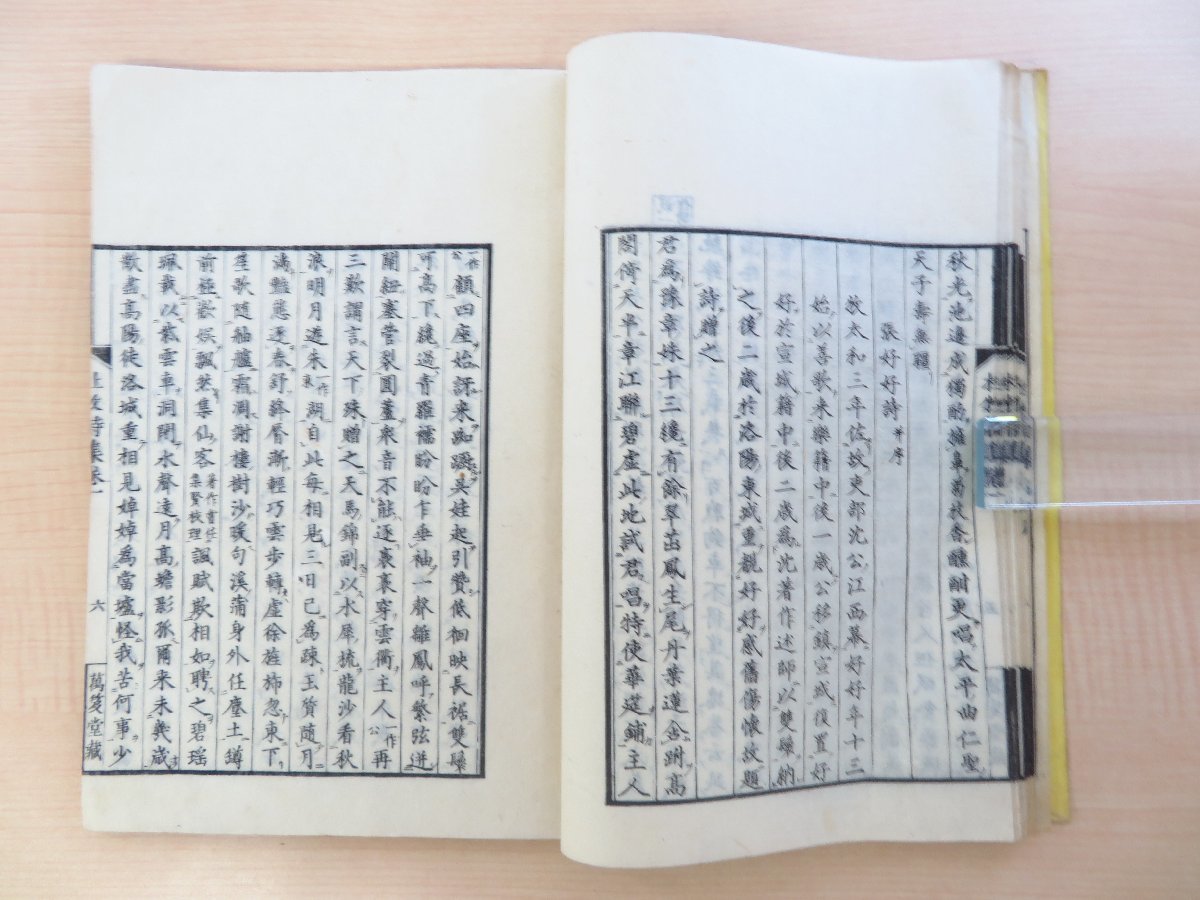 秋光池邊成獨酌擁鼻菊枝香醺酣更唱太平曲仁聖
天子壽無疆
張好好詩 并序
牧太和三年佐故吏部沈公江西幕好好年十三
始以善歌來樂籍中後一歲公移鎮宣城復置好
好於宣城籍中後二歲為沈著作述師以雙鬟納
之後二歲於洛陽東城重覩好好感舊傷懷故題
詩贈之
君為豫章姝十三纔有餘翠茁鳳生尾丹葉蓮含跗高
閣倚天半章江聯碧虛此地試君唱特使華筵鋪主人
一作公顧四座始訝來踟躕吳娃起引贊低徊映長裾雙鬟
可高下纔過青羅襦盼盼乍垂袖一聲雛鳳呼繁弦迸
關紐塞管裂圓蘆衆音不能逐裊裊穿雲衢主人一作公再
三歎謂言天下殊贈之天馬錦副以水犀梳龍沙看秋
浪明月遊朱一作東湖自此每相見三日已為疎玉質随月
滿豔態逐春舒絳脣漸輕巧雲步轉虛徐旌旆忽東下
笙歌随舳艫霜凋謝樓樹沙暖句溪蒲身外任塵土罇
前極歡娛飄然集仙客著作嘗任集賢校理諷賦欺相如聘之碧瑤
珮載以紫雲車洞閉水聲遠月高蟾影孤爾来未幾歲
散盡高陽徒洛城重相見婥婥為當壚怪我苦何事少
詩集卷一 六 萬笈堂藏